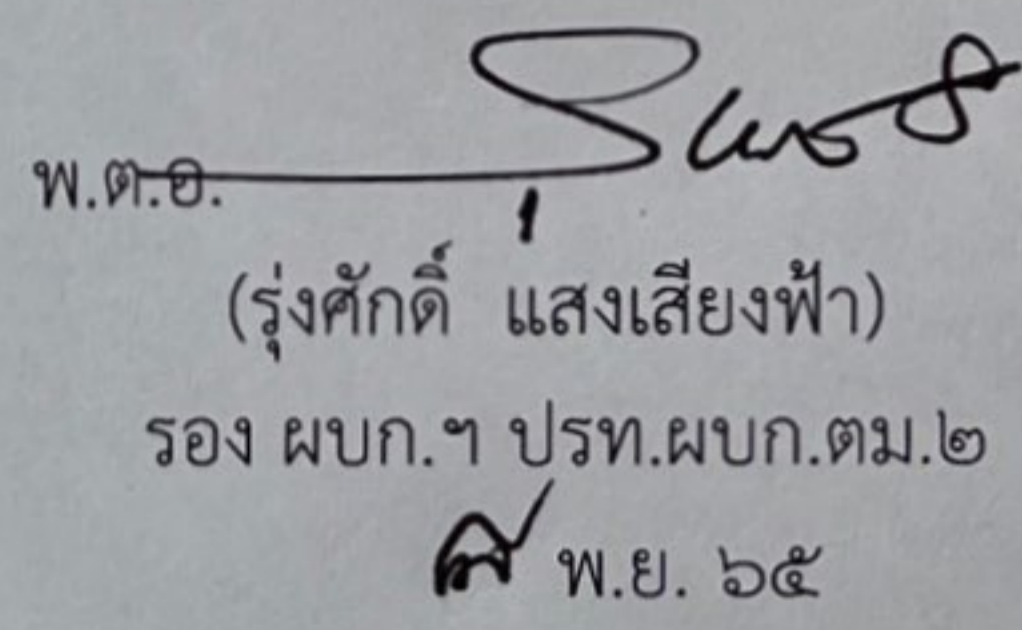 พ.ต.อ.
(รุ่งศักดิ์ แสงเสียงฟ้า)
รอง ผบก.ฯ ปรท.ผบก.ตม.๒
พ.ย. ๖๕